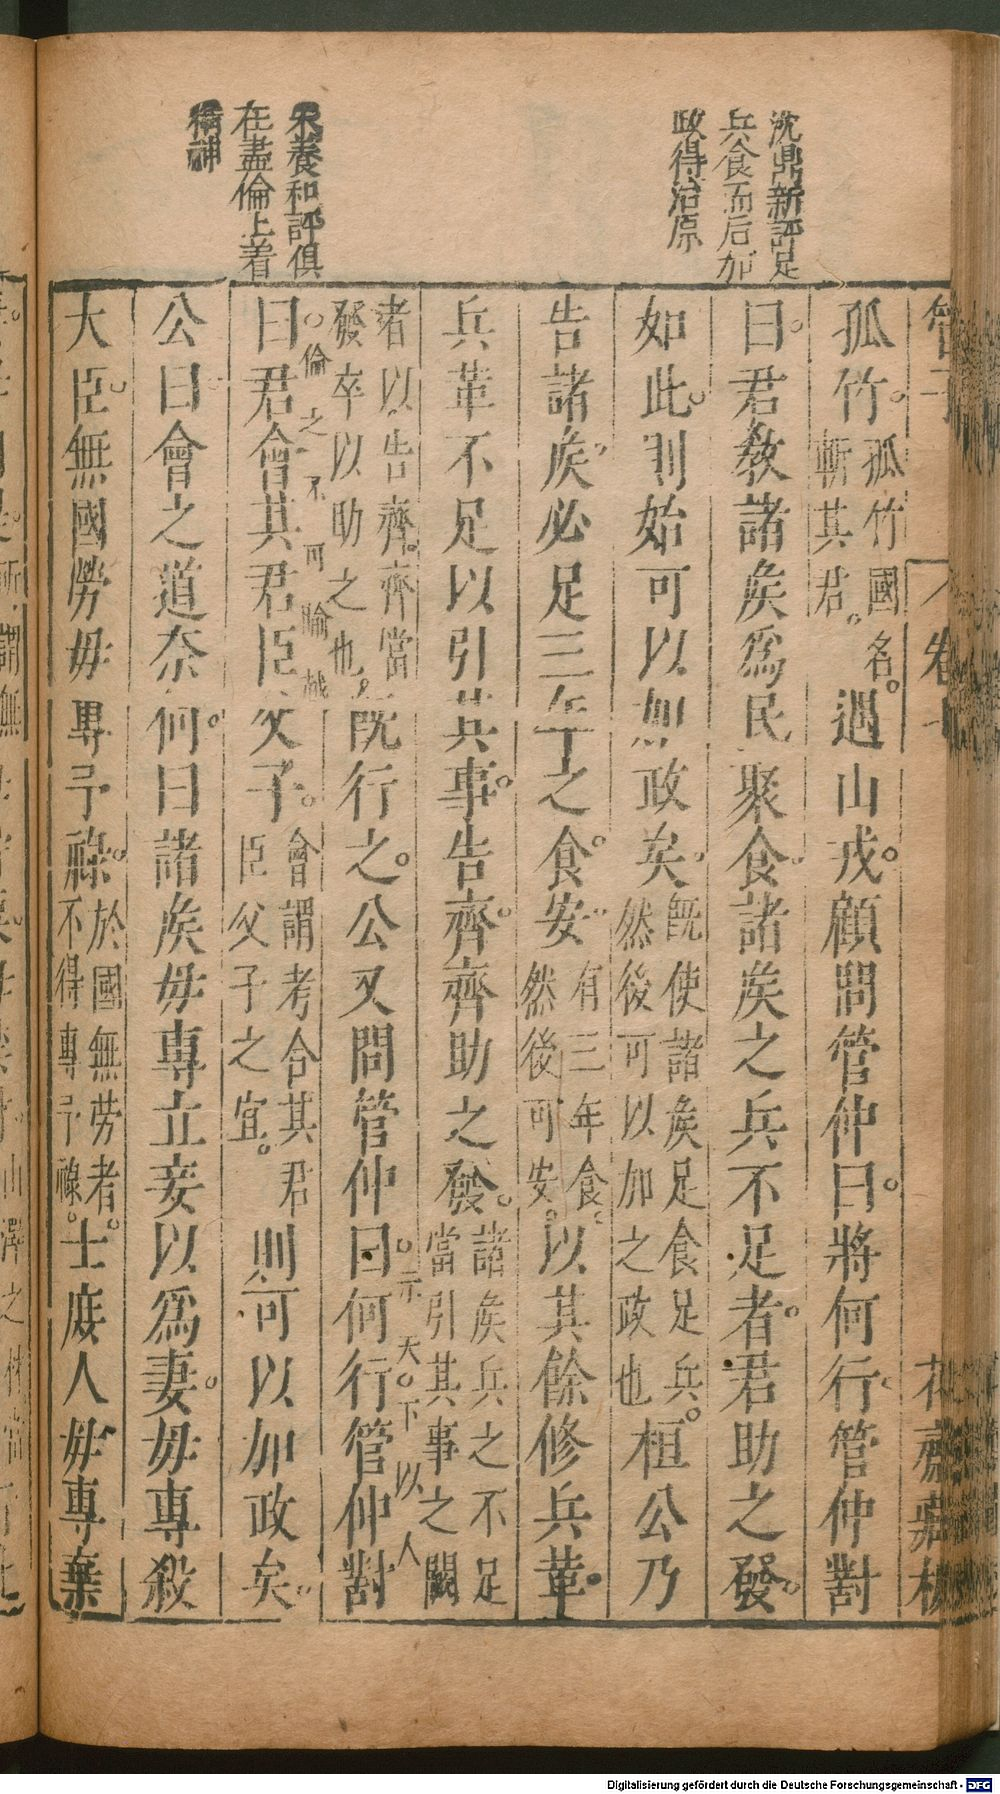 沈鼎新評足
兵食而后加
政得治原
朱養和評俱
在盡倫上着
精神
管子
卷七
花齋藏板
孤竹。孤竹國名。斬其君。遇山戎。顧問管仲曰。將何行。管仲對
曰。君教諸矦爲民聚食。諸矦之兵不足者。君助之發。
如此。則始可以加政矣。既使諸矦足食足兵。然後可以加之政也桓公乃
告諸矦。必足三年之食。安。有三年食。然後可安。以其餘修兵革。
兵革不足以引其事。告齊。齊助之發。諸矦兵之不足當引其事之闕
者以告齊。齊當發卒以助之也。既行之。公又問管仲曰。何行。管仲對
示天下以人
曰。君會其君臣父子。會謂考合其君臣父子之宜。則可以加政矣。
倫之不可
公曰。會之道奈何。曰。諸矦毋專立妾以爲妻。毋專殺
大臣。無國勞。毋專予祿。於國無劳者。不得專予祿。士庶人毋專棄
Digitalisierung gefördert durch die Deutsche Forschungsgemeinschaft - DFG